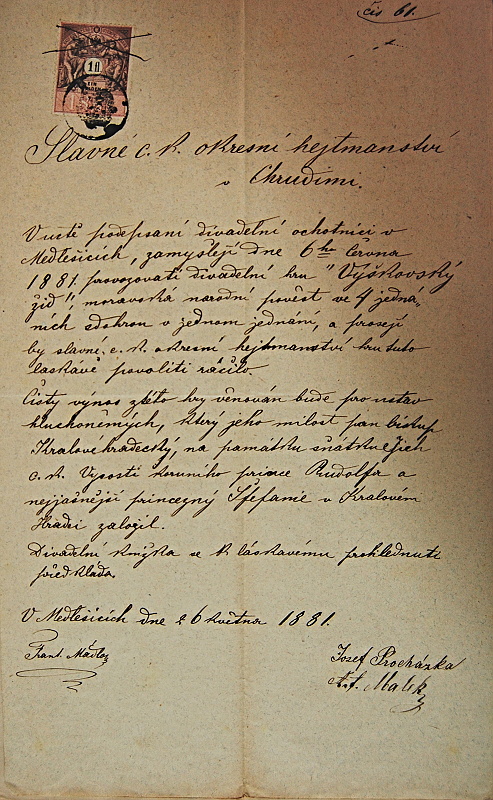 čís 61.
1 fl.
Slavné c. k. okresní hejtmanství
v Chrudimi.
V úctě podepsaní divadelní ochotníci v
Medlešicích, zamýšlejí dne 6ho června
1881 provozovati divadelní hru "Vyškovský
žid", moravská národní pověst ve 4 jedná-
ních s dohrou v jednom jednání, a prosejí
by slavné c. k. okresní hejtmanství hru tuto
laskavě povoliti ráčilo.
Čistý výnos z této hry věnován bude pro ústav
hluchoněmých, který jeho milost pan biskup
Králové hradecký, na památku sňatku Jejich
c. k. Výsosti koruního prince Rudolfa a
nejjasnější princezny Štefanie v Kralovém
Hradci založil.
Divadelní knížka se k láskavému prohlednutí
předkládá.
V Medlešicích dne 26 května 1881.
Frant. Mádlo
Jozef Procházka
Malek